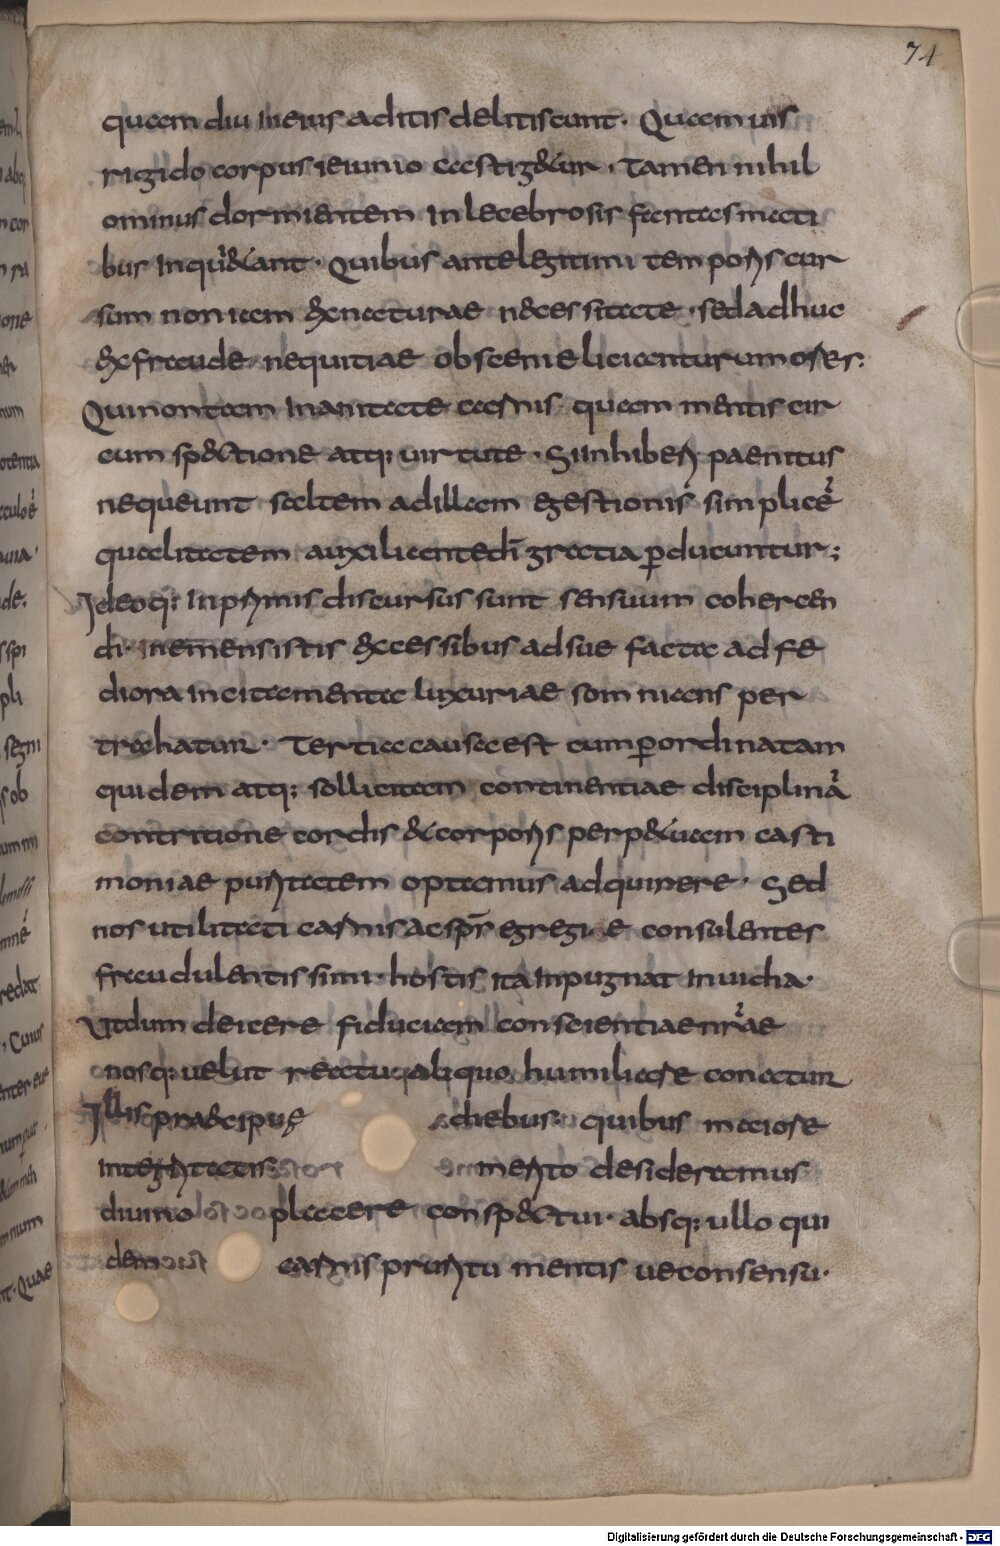 74
quam diu in eius aditis delitiscunt. Quamuis
rigido corpus ieiunio castig&ur. Tamen nihil
ominus dormientem inlecebrosis fantasmati
bus inqui&ant. Quibus ante legitimi temporis cur
sum non iam ex naturae necessitate. sed adhuc
ex fraude nequitiae obsceni eliciantur umores.
Qui non tam inanitate carnis quam mentis cir
cumspectione atq; uirtute. Si inhiberi paenitus
nequeunt saltem ad illam egestionis simplicē
qualitatem auxiliante dī gratia ꝑducuntur;
Ideoq; inprimis discursus sunt sensuum cohercen
di. ne mens istis excessibus adsuefacta ad fe
diora incitamenta luxuriae somnians per
trahatur. Tertia causa est cum ꝑ ordinatam
quidem atq; sollicitam continentiae disciplinā
contritione cordis & corporis perp&uam casti
moniae puritatem optamus adquirere. Sed
nos utilitati carnis ac sp̄s egregie consulentes
fraudulentissimi hostis ita inpugnat inuidia.
Ut dum deicere fiduciam conscientiae nr̄ae
nosq; uelut reatu aliquo humiliare conatur
Illis praecipuę diebus quibus maiore
integritatis merito desideramus
diuino placere conspectui. absq; ullo qui
dem carnis pruritu mentis ue consensu.
Digitalisierung gefördert durch die Deutsche Forschungsgemeinschaft - DFG